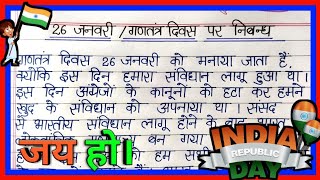 26 जनवरी / गणतंत्र दिवस पर निबन्ध
गणतंत्र दिवस 26 जनवरी को मनाया जाता है,
क्योंकि इस दिन हमारा संविधान लागू हुआ था।
इस दिन अंग्रेजों के कानूनों को हटा कर हमने
खुद के संविधान को अपनाया था। संसद
में भारतीय संविधान लागू होने के बाद
बन गया
को हम
जय हो।
INDIA
REPUBLIC
DAY